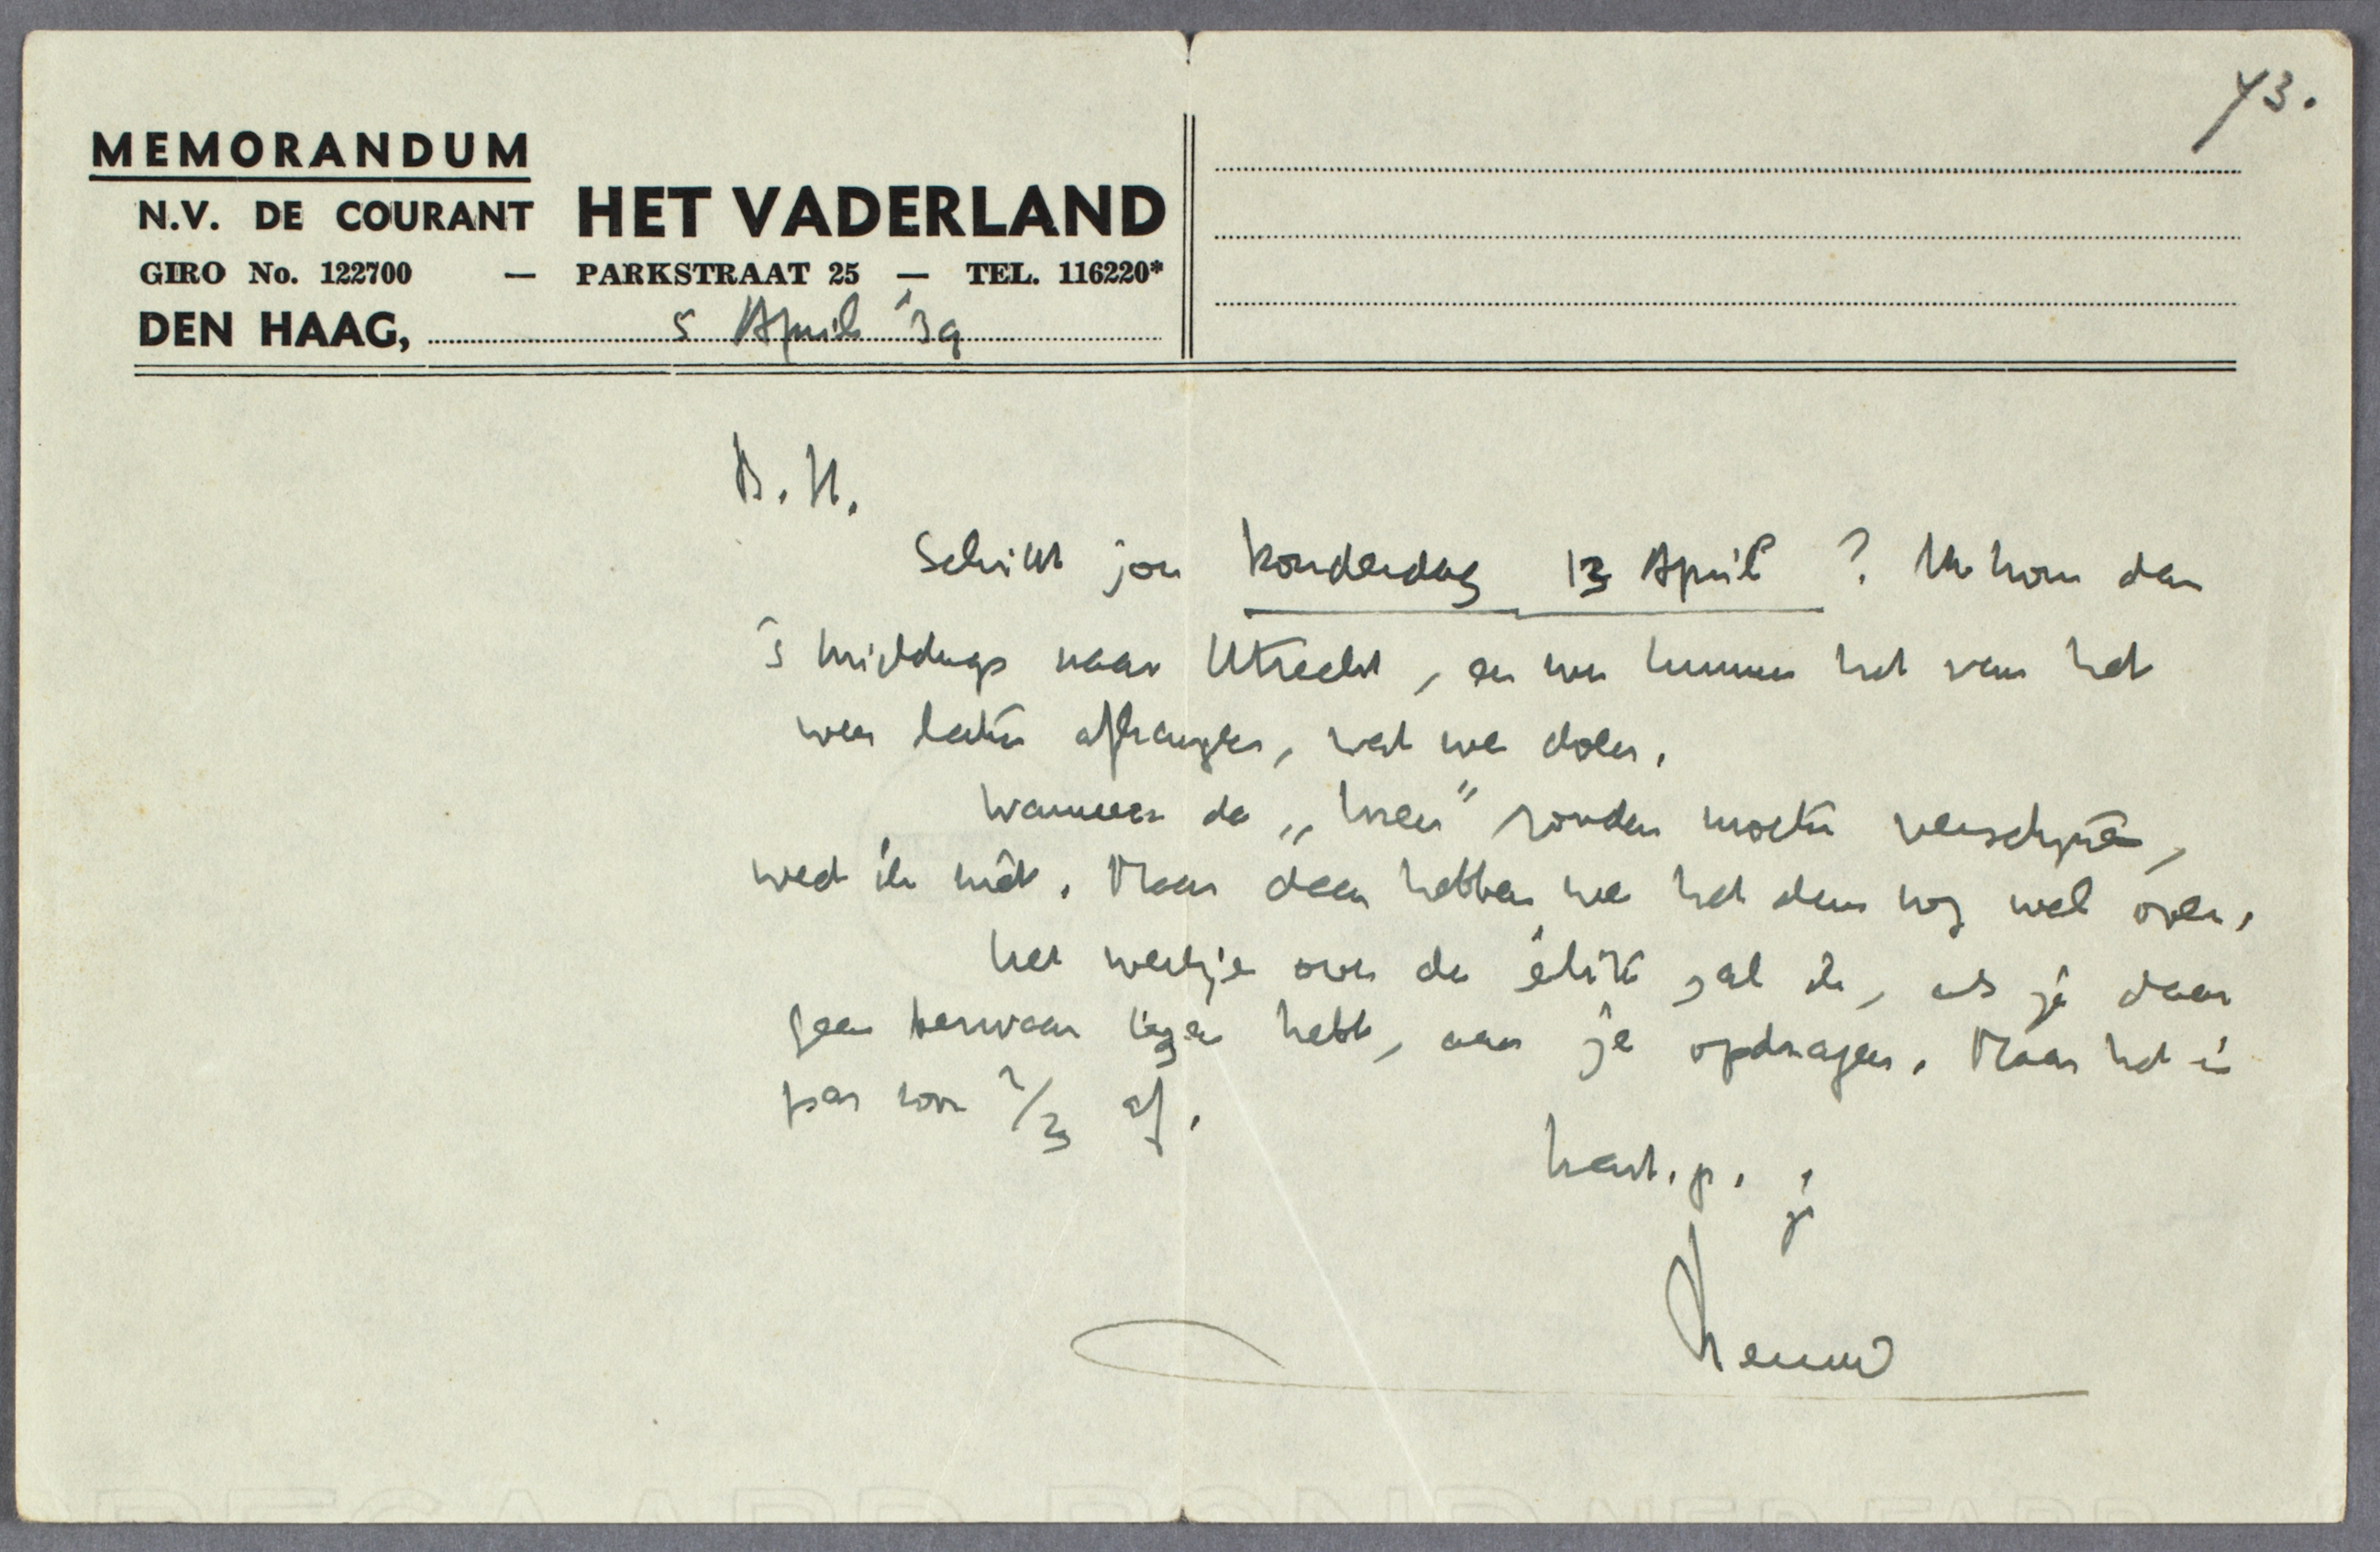 73.
MEMORANDUM
N.V. DE COURANT HET VADERLAND
GIRO No. 122700 — PARKSTRAAT 25 — TEL. 116220*
DEN HAAG, 5 April '39
B. H.
Schikt jou Donderdag 13 April ? Ik kom dan
's middags naar Utrecht, en we kunnen het van het
weer laten afhangen, wat we doen.
Wanneer de „ " zouden moeten verschijnen,
weet ik niet. Maar daar hebben we het dan nog wel over.
Het werkje over de élite zal ik, als je daar
geen bezwaar tegen hebt, aan je opdragen. Maar het is
pas voor 2/3 af.
hart. gr. je
Menno